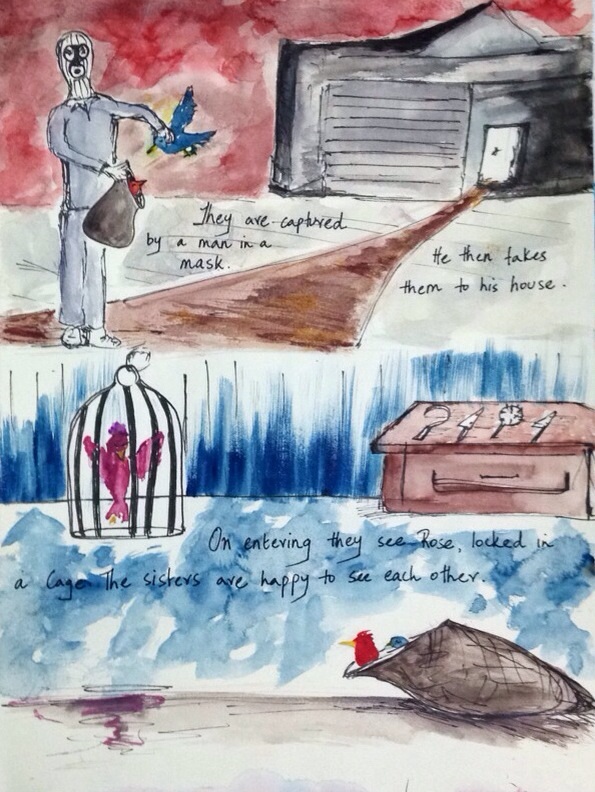 They are captured
by a man in a
mask.
He then takes
them to his house.
On entering they see Rose, locked in
a Cage. The sisters are happy to see each other.